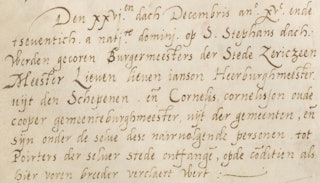 Den xxvi.ten dach Decembris an.o xv.c ende
tseventich. a nati.te domini. op S. Stephans dach:
Werden gecoren Burgermeesters der Stede Zericzeen
Meester Lieven Lieven iansson Heerburghmeester
uijt den Schepenen. en Cornelis, cornelisson oude
cooper gemeenteburghmeester, uijt der gemeenten, en
sijn onder de selve dese naervolgende personen. tot
Poirters der selver stede ontfangen, opde coditien als
hier voren breeder verclaert wert: